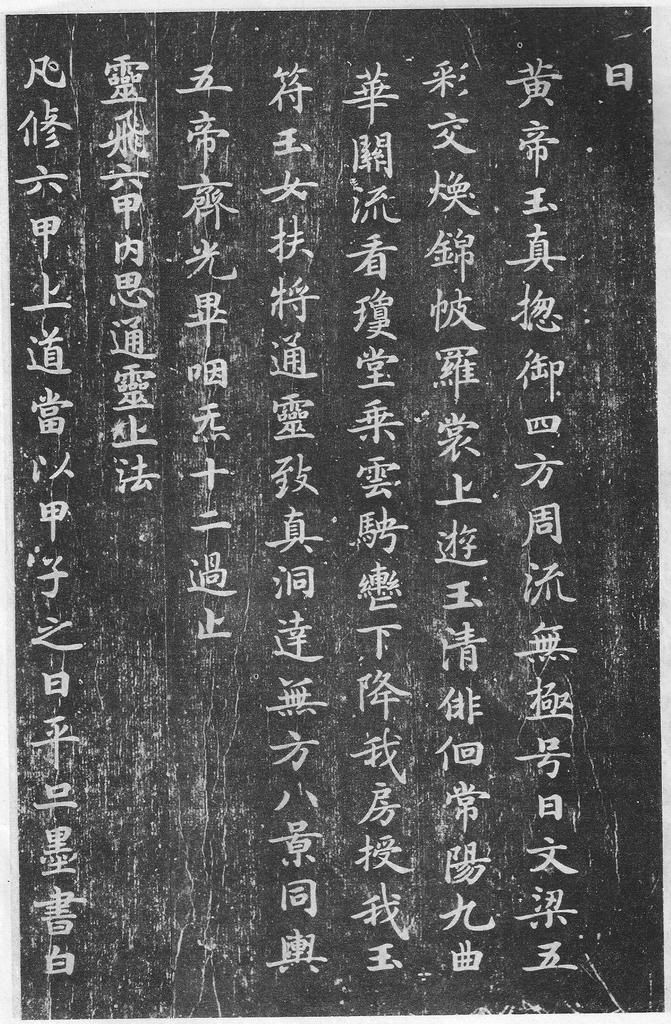 曰
黃帝玉真揔御四方周流無極号曰文梁五
彩交煥錦帔羅裳上遊玉清俳佪常陽九曲
華關流看瓊堂乗雲騁轡下降我房授我玉
符玉女扶將通靈致真洞達無方八景同輿
五帝齊光畢咽炁十二過止
靈飛六甲內思通靈上法
凡修六甲上道當以甲子之日平旦墨書白